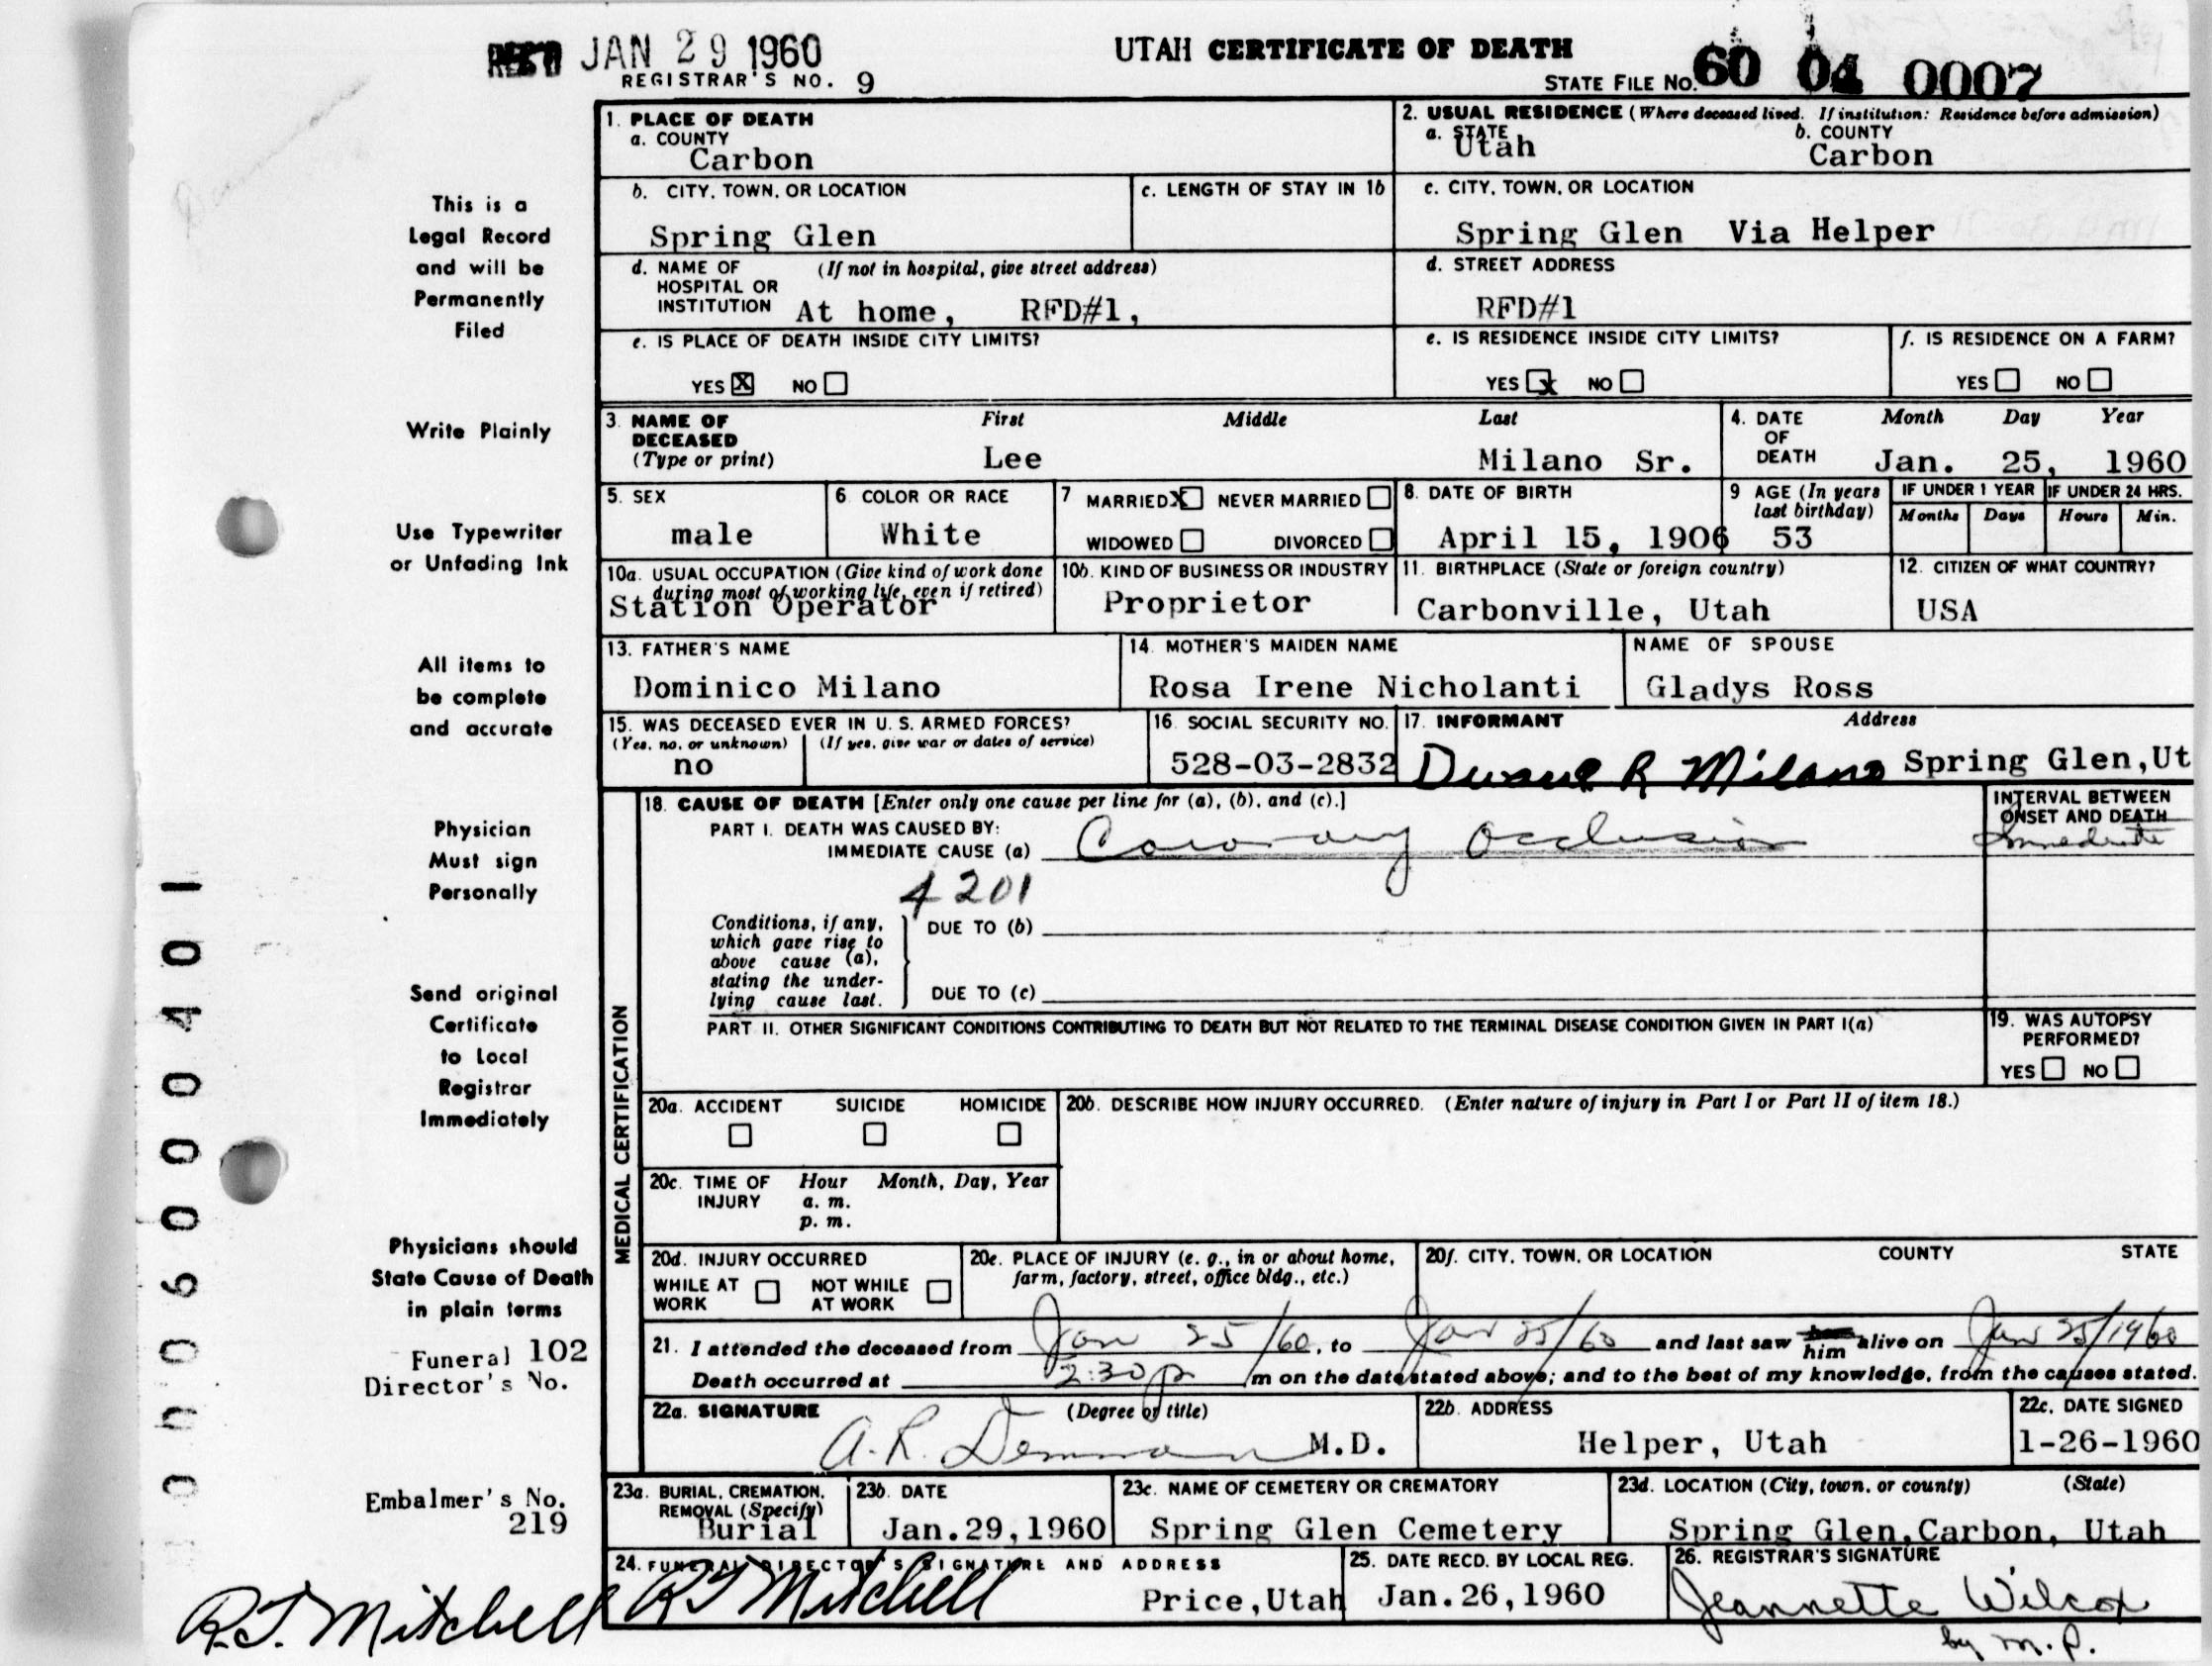 REC'D JAN 29 1960
UTAH CERTIFICATE OF DEATH
REGISTRAR'S NO. 9
STATE FILE NO. 60 04 0007
This is a
Legal Record
and will be
Permanently
Filed
Write Plainly
Use Typewriter
or Unfading Ink
All items to
be complete
and accurate
Physician
Must sign
Personally
Send original
Certificate
to Local
Registrar
Immediately
Physicians should
State Cause of Death
in plain terms
Funeral 102
Director's No.
Embalmer's No.
219
R.T. Mitchell
1. PLACE OF DEATH
a. COUNTY
Carbon
2. USUAL RESIDENCE (Where deceased lived. If institution: Residence before admission)
a. STATE b. COUNTY
Utah Carbon
b. CITY, TOWN, OR LOCATION c. LENGTH OF STAY IN 1b
Spring Glen
c. CITY, TOWN, OR LOCATION
Spring Glen Via Helper
d. NAME OF (If not in hospital, give street address)
HOSPITAL OR
INSTITUTION At home, RFD#1,
d. STREET ADDRESS
RFD#1
e. IS PLACE OF DEATH INSIDE CITY LIMITS?
YES X NO
e. IS RESIDENCE INSIDE CITY LIMITS?
YES x NO
f. IS RESIDENCE ON A FARM?
YES NO
3. NAME OF First Middle Last
DECEASED
(Type or print) Lee Milano Sr.
4. DATE Month Day Year
OF
DEATH Jan. 25, 1960
5. SEX
male
6. COLOR OR RACE
White
7 MARRIED X NEVER MARRIED
WIDOWED DIVORCED
8. DATE OF BIRTH
April 15, 1906
9 AGE (In years
last birthday)
53
IF UNDER 1 YEAR IF UNDER 24 HRS.
Months Days Hours Min.
10a. USUAL OCCUPATION (Give kind of work done
during most of working life, even if retired)
Station Operator
10b. KIND OF BUSINESS OR INDUSTRY
Proprietor
11. BIRTHPLACE (State or foreign country)
Carbonville, Utah
12. CITIZEN OF WHAT COUNTRY?
USA
13. FATHER'S NAME
Dominico Milano
14. MOTHER'S MAIDEN NAME
Rosa Irene Nicholanti
NAME OF SPOUSE
Gladys Ross
15. WAS DECEASED EVER IN U. S. ARMED FORCES?
(Yes, no, or unknown) (If yes, give war or dates of service)
no
16. SOCIAL SECURITY NO.
528-03-2832
17. INFORMANT Address
Duane R Milano Spring Glen,Ut
MEDICAL CERTIFICATION
18. CAUSE OF DEATH [Enter only one cause per line for (a), (b), and (c).]
PART I. DEATH WAS CAUSED BY:
IMMEDIATE CAUSE (a) Coronary Occlusion
INTERVAL BETWEEN
ONSET AND DEATH
Immediate
4201
Conditions, if any,
which gave rise to
above cause (a),
stating the under-
lying cause last.
DUE TO (b)
DUE TO (c)
PART II. OTHER SIGNIFICANT CONDITIONS CONTRIBUTING TO DEATH BUT NOT RELATED TO THE TERMINAL DISEASE CONDITION GIVEN IN PART I(a)
19. WAS AUTOPSY
PERFORMED?
YES NO
20a. ACCIDENT SUICIDE HOMICIDE
20b. DESCRIBE HOW INJURY OCCURRED. (Enter nature of injury in Part I or Part II of item 18.)
20c. TIME OF Hour Month, Day, Year
INJURY a. m.
p. m.
20d. INJURY OCCURRED
WHILE AT NOT WHILE
WORK AT WORK
20e. PLACE OF INJURY (e. g., in or about home,
farm, factory, street, office bldg., etc.)
20f. CITY, TOWN, OR LOCATION COUNTY STATE
21. I attended the deceased from Jan 25/60, to Jan 25/60 and last saw him alive on Jan 25/1960
Death occurred at 2:30 p m on the date stated above; and to the best of my knowledge, from the causes stated.
22a. SIGNATURE (Degree or title)
A. R. Demman M.D.
22b. ADDRESS
Helper, Utah
22c. DATE SIGNED
1-26-1960
23a. BURIAL, CREMATION,
REMOVAL (Specify)
Burial
23b. DATE
Jan.29,1960
23c. NAME OF CEMETERY OR CREMATORY
Spring Glen Cemetery
23d. LOCATION (City, town, or county) (State)
Spring Glen,Carbon, Utah
24. FUNERAL DIRECTOR'S SIGNATURE AND ADDRESS
R T Mitchell Price,Utah
25. DATE RECD. BY LOCAL REG.
Jan.26,1960
26. REGISTRAR'S SIGNATURE
Jeannette Wilcox
by M.P.